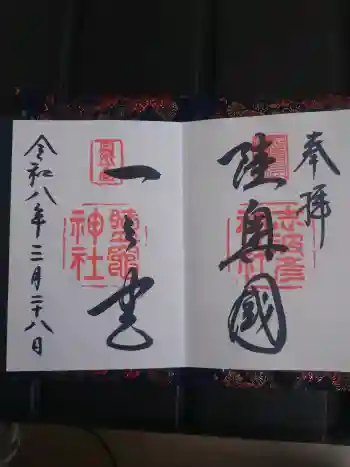 奉拝
陸奥國
志波彦神社
一之宮
鹽竈神社
令和八年三月二十八日